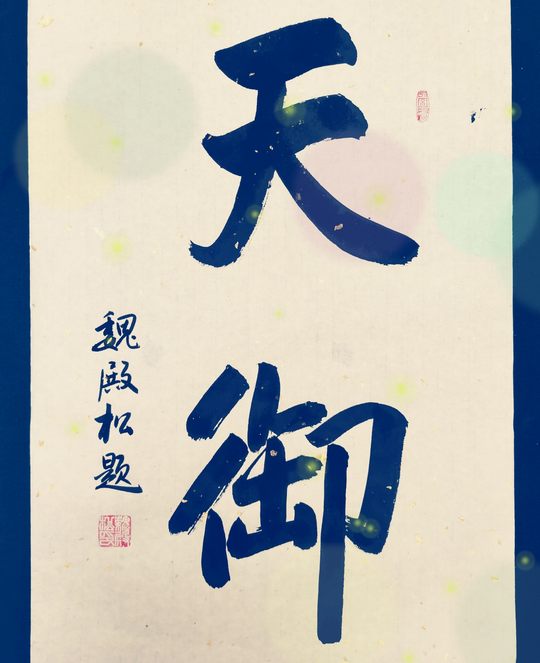 天御
魏殿松题